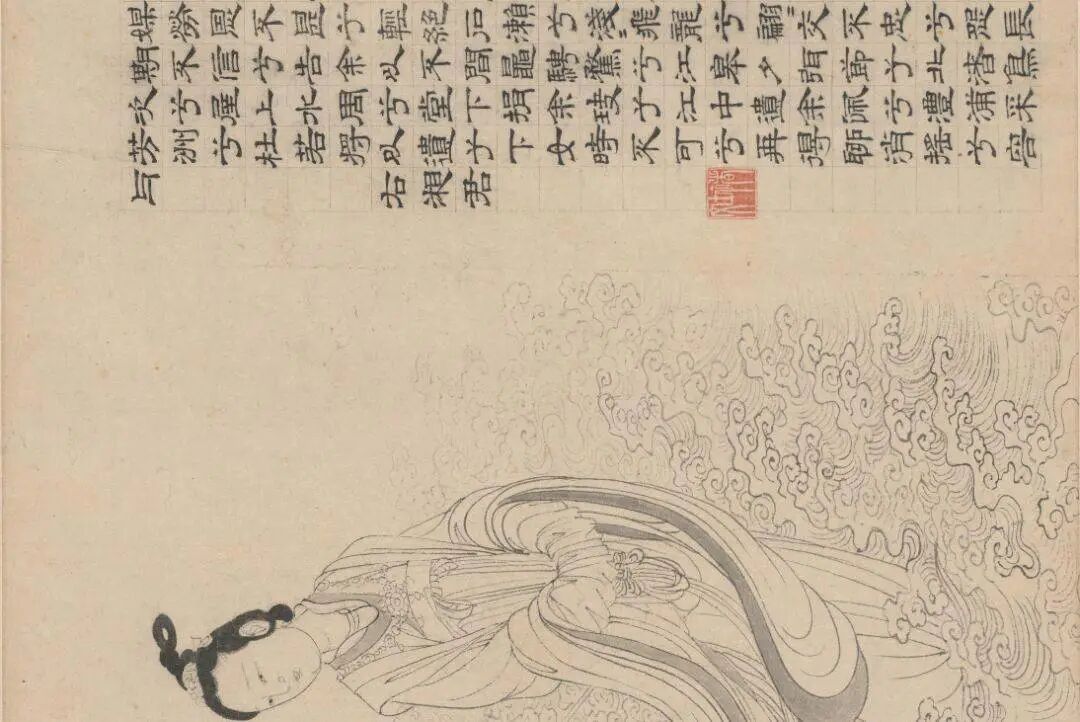 媒勞恩不甚兮輕絕石瀨兮淺〻飛龍兮翩〻交不忠兮怨長
期不信兮告余以不閒鼂騁騖兮江皋夕弭節兮北渚鳥
次兮屋上水周兮堂下捐余玦兮江中遺余佩兮澧浦采
芳洲兮杜若將以遺兮下女時不可兮再得聊消搖兮容
與
右湘君